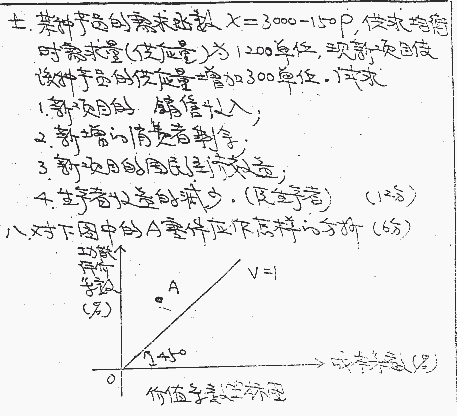 七.某种产品的需求函数 X=3000-150P,供求均衡
时需求量(供应量)为1200单位,现新项目使
该种产品的供应量增加300单位.试求
1.新项目的 销售收入;
2.新增的消费者剩余;
3.新项目的国民经济效益;
4.生产者收益的减少.(原生产者) (12分)
八.对下图中的A零件应作怎样的分析 (6分)
功能
评价
系数
(%)
A
V=1
45°
0
成本系数(%)
价值系数坐标图